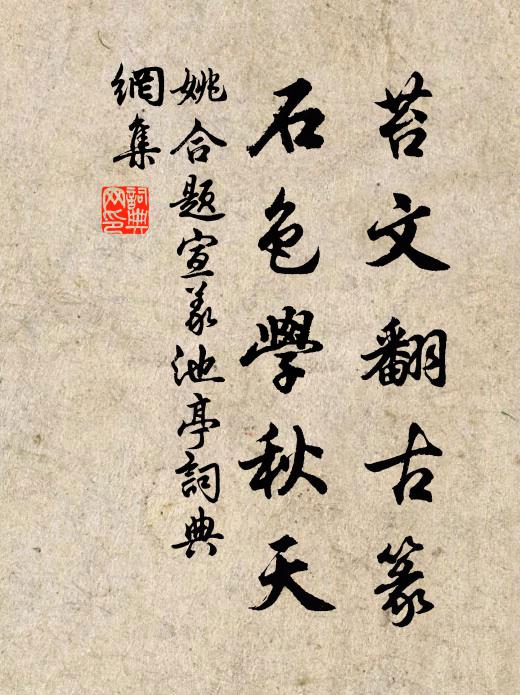 苔文翻古篆
石色學秋天
姚合題宣義池亭詞典
網集
詞典網印